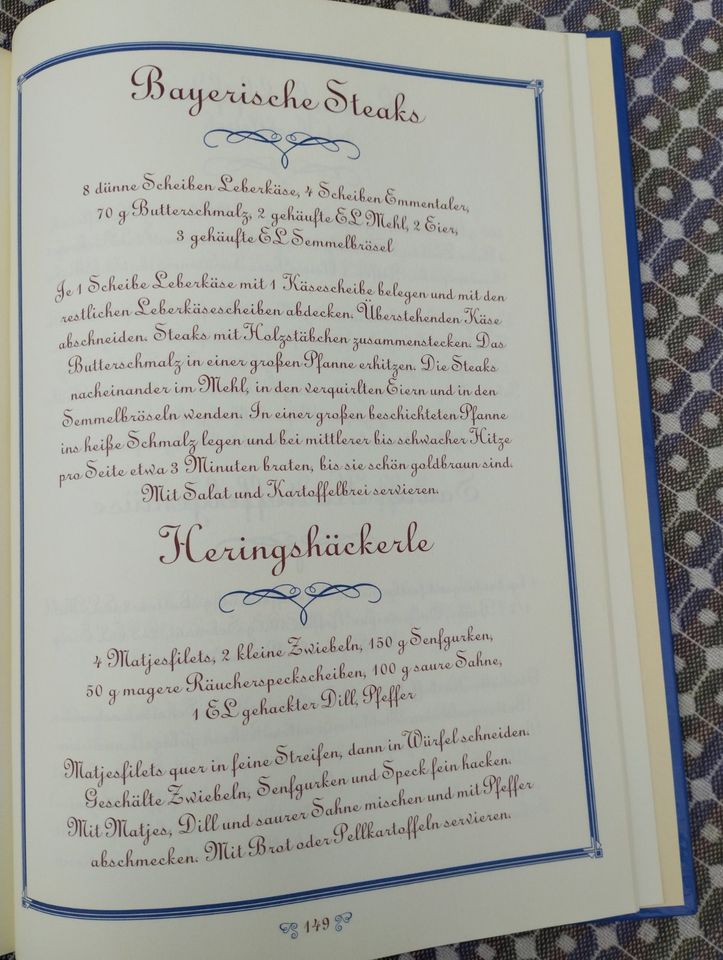 Bayerische Steaks
8 dünne Scheiben Leberkäse, 4 Scheiben Emmentaler,
70 g Butterschmalz, 2 gehäufte EL Mehl, 2 Eier,
3 gehäufte EL Semmelbrösel
Je 1 Scheibe Leberkäse mit 1 Käsescheibe belegen und mit den
restlichen Leberkäsescheiben abdecken. Überstehenden Käse
abschneiden. Steaks mit Holzstäbchen zusammenstecken. Das
Butterschmalz in einer großen Pfanne erhitzen. Die Steaks
nacheinander im Mehl, in den verquirlten Eiern und in den
Semmelbröseln wenden. In einer großen beschichteten Pfanne
ins heiße Schmalz legen und bei mittlerer bis schwacher Hitze
pro Seite etwa 3 Minuten braten, bis sie schön goldbraun sind.
Mit Salat und Kartoffelbrei servieren.
Heringshäckerle
4 Matjesfilets, 2 kleine Zwiebeln, 150 g Senfgurken,
50 g magere Räucherspeckscheiben, 100 g saure Sahne,
1 EL gehackter Dill, Pfeffer
Matjesfilets quer in feine Streifen, dann in Würfel schneiden.
Geschälte Zwiebeln, Senfgurken und Speck fein hacken.
Mit Matjes, Dill und saurer Sahne mischen und mit Pfeffer
abschmecken. Mit Brot oder Pellkartoffeln servieren.
149